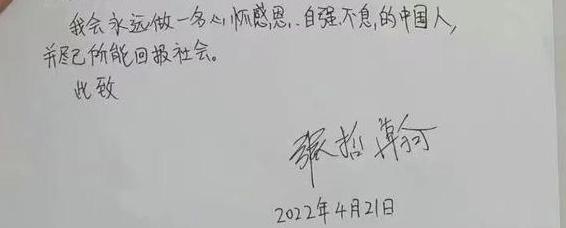 我会永远做一名心怀感恩、自强不息的中国人,
并尽己所能回报社会。
此致
张哲瀚
2022年4月21日